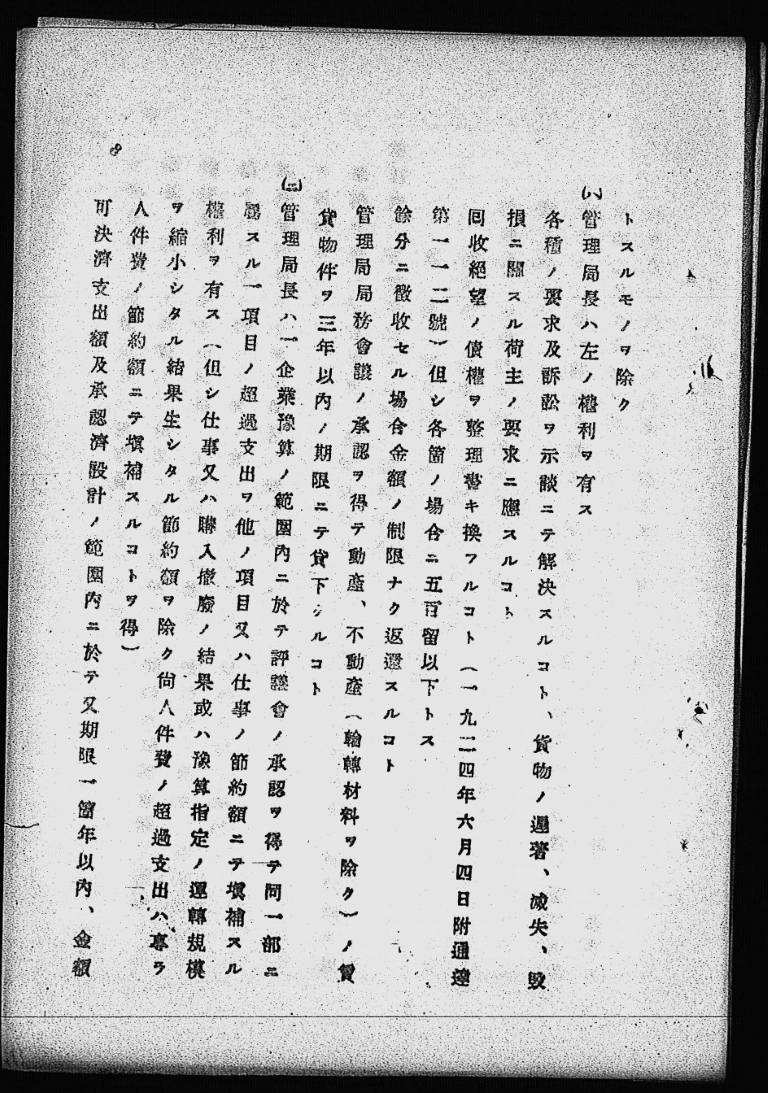 トスルモノヲ除ク
(ハ)管理局長ハ左ノ權利ヲ有ス
各種ノ要求及訴訟ヲ示談ニテ解決スルコト、貨物ノ遲着、滅失、毀
損ニ關スル荷主ノ要求ニ應スルコト
回收絕望ノ債權ヲ整理書キ換フルコト(一九二四年六月四日附通達
第一一二號)但シ各箇ノ場合ニ五百留以下トス
餘分ニ徵收セル場合金額ノ制限ナク返還スルコト
管理局局務會議ノ承認ヲ得テ動產、不動產(輪轉材料ヲ除ク)ノ賃
貸物件ヲ三年以內ノ期限ニテ貸下クルコト
(ニ)管理局長ハ一企業豫算ノ範圍內ニ於テ評議會ノ承認ヲ得テ同一部ニ
屬スル一項目ノ超過支出ヲ他ノ項目又ハ仕事ノ節約額ニテ塡補スル
權利ヲ有ス(但シ仕事又ハ購入撤廢ノ結果或ハ豫算指定ノ運轉規模
ヲ縮小シタル結果生シタル節約額ヲ除ク尙人件費ノ超過支出ハ專ラ
人件費ノ節約額ニテ塡補スルコトヲ得)
可決濟支出額及承認濟設計ノ範圍內ニ於テ又期限一箇年以內、金額
8